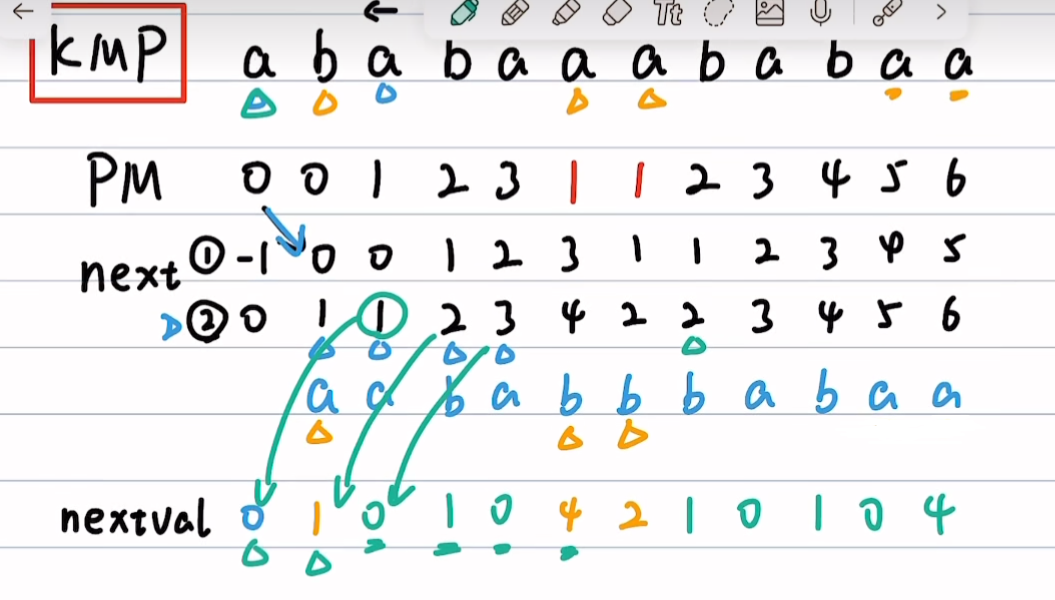 Tt
KMP a b a b a a a b a b a a
PM 0 0 1 2 3 1 1 2 3 4 5 6
next ① -1 0 0 1 2 3 1 1 2 3 4 5
② 0 1 1 2 3 4 2 2 3 4 5 6
a a b a b b b a b a a
nextval 0 1 0 1 0 4 2 1 0 1 0 4